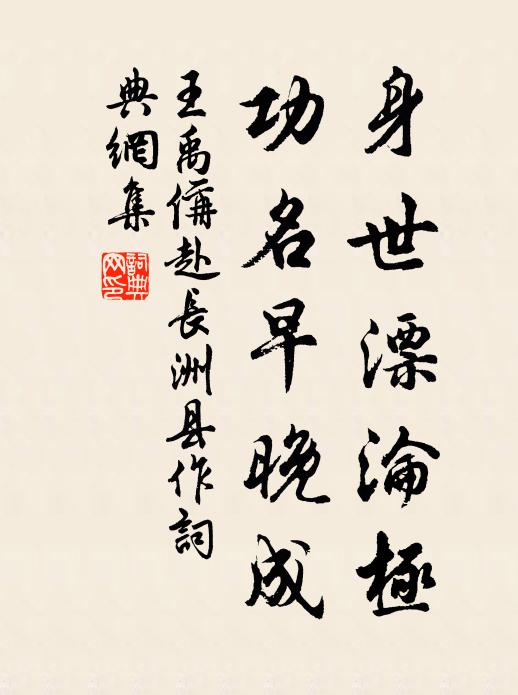 身世漂淪極
功名早晚成
王禹偁赴長洲县作詞
典網集
詞典网印